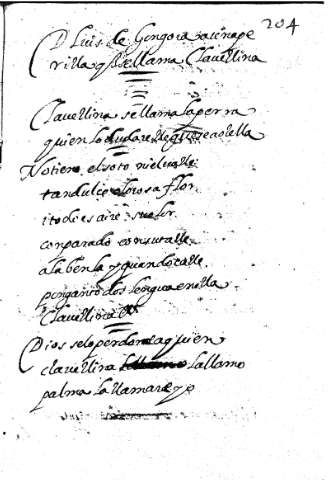 204
D Luis de Gongora a una pe
rrilla q se llama Clavellina
Clavellina se llama la perra
quien lo dudare
No tiene el soto ni el valle
tan dulce olorosa flor
todo es aire su olor
conparado con su talle
alabenla y quando calle
pongamos dos lengua en ella
Clavellina &
Dios se lo perdone a quien
clavellina la llamo
palma la llamare yo